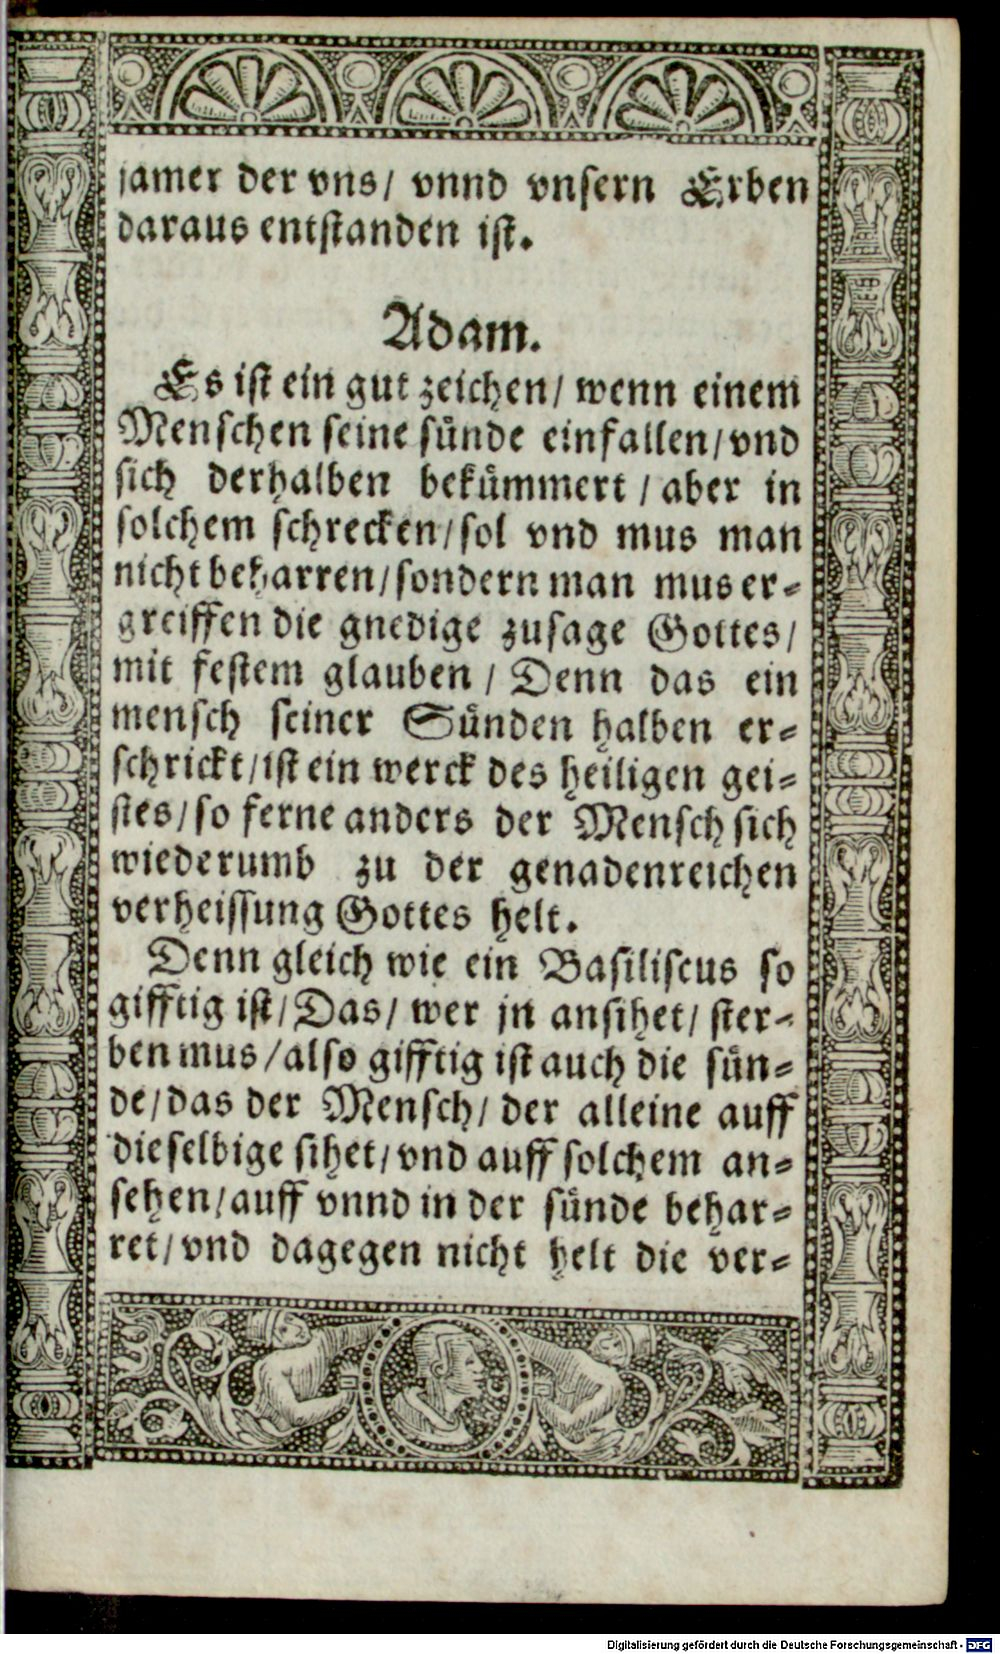 jamer der vns/ vnnd vnsern Erben
daraus entstanden ist.
Adam.
Es ist ein gut zeichen/ wenn einem
Menschen seine sünde einfallen/ vnd
sich derhalben bekümmert / aber in
solchem schrecken/ sol vnd mus man
nicht beharren/ sondern man mus er-
greiffen die gnedige zusage Gottes/
mit festem glauben / Denn das ein
mensch seiner Sünden halben er-
schrickt/ ist ein werck des heiligen gei-
stes/ so ferne anders der Mensch sich
wiederumb zu der genadenreichen
verheissung Gottes helt.
Denn gleich wie ein Basiliscus so
gifftig ist/ Das/ wer jn ansihet/ ster-
ben mus / also gifftig ist auch die sün-
de/ das der Mensch/ der alleine auff
dieselbige sihet/ vnd auff solchem an-
sehen/ auff vnnd in der sünde behar-
ret/ vnd dagegen nicht helt die ver-
Digitalisierung gefördert durch die Deutsche Forschungsgemeinschaft - DFG